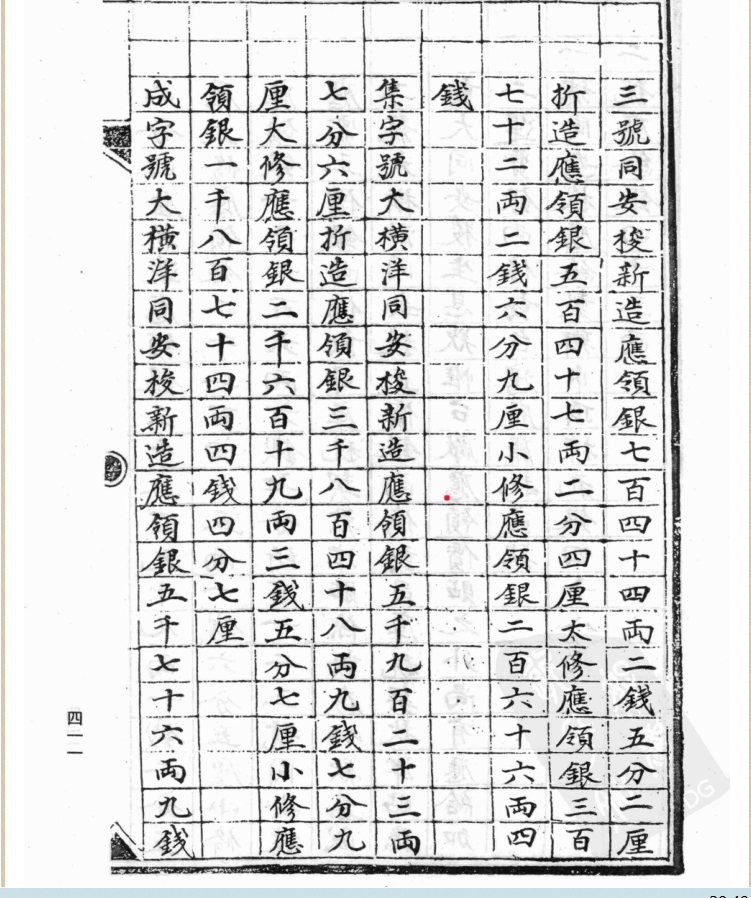 三號同安梭新造應領銀七百四十四両二錢五分二厘
折造應領銀五百四十七両二分四厘大修應領銀三百
七十二両二錢六分九厘小修應領銀二百六十六両四
錢
集字號大横洋同安梭新造應領銀五千九百二十三両
七分六厘折造應領銀三千八百四十八両九錢七分九
厘大修應領銀二千六百十九両三錢五分七厘小修應
領銀一千八百七十四両四錢四分七厘
成字號大横洋同安梭新造應領銀五千七十六両九錢
四一一